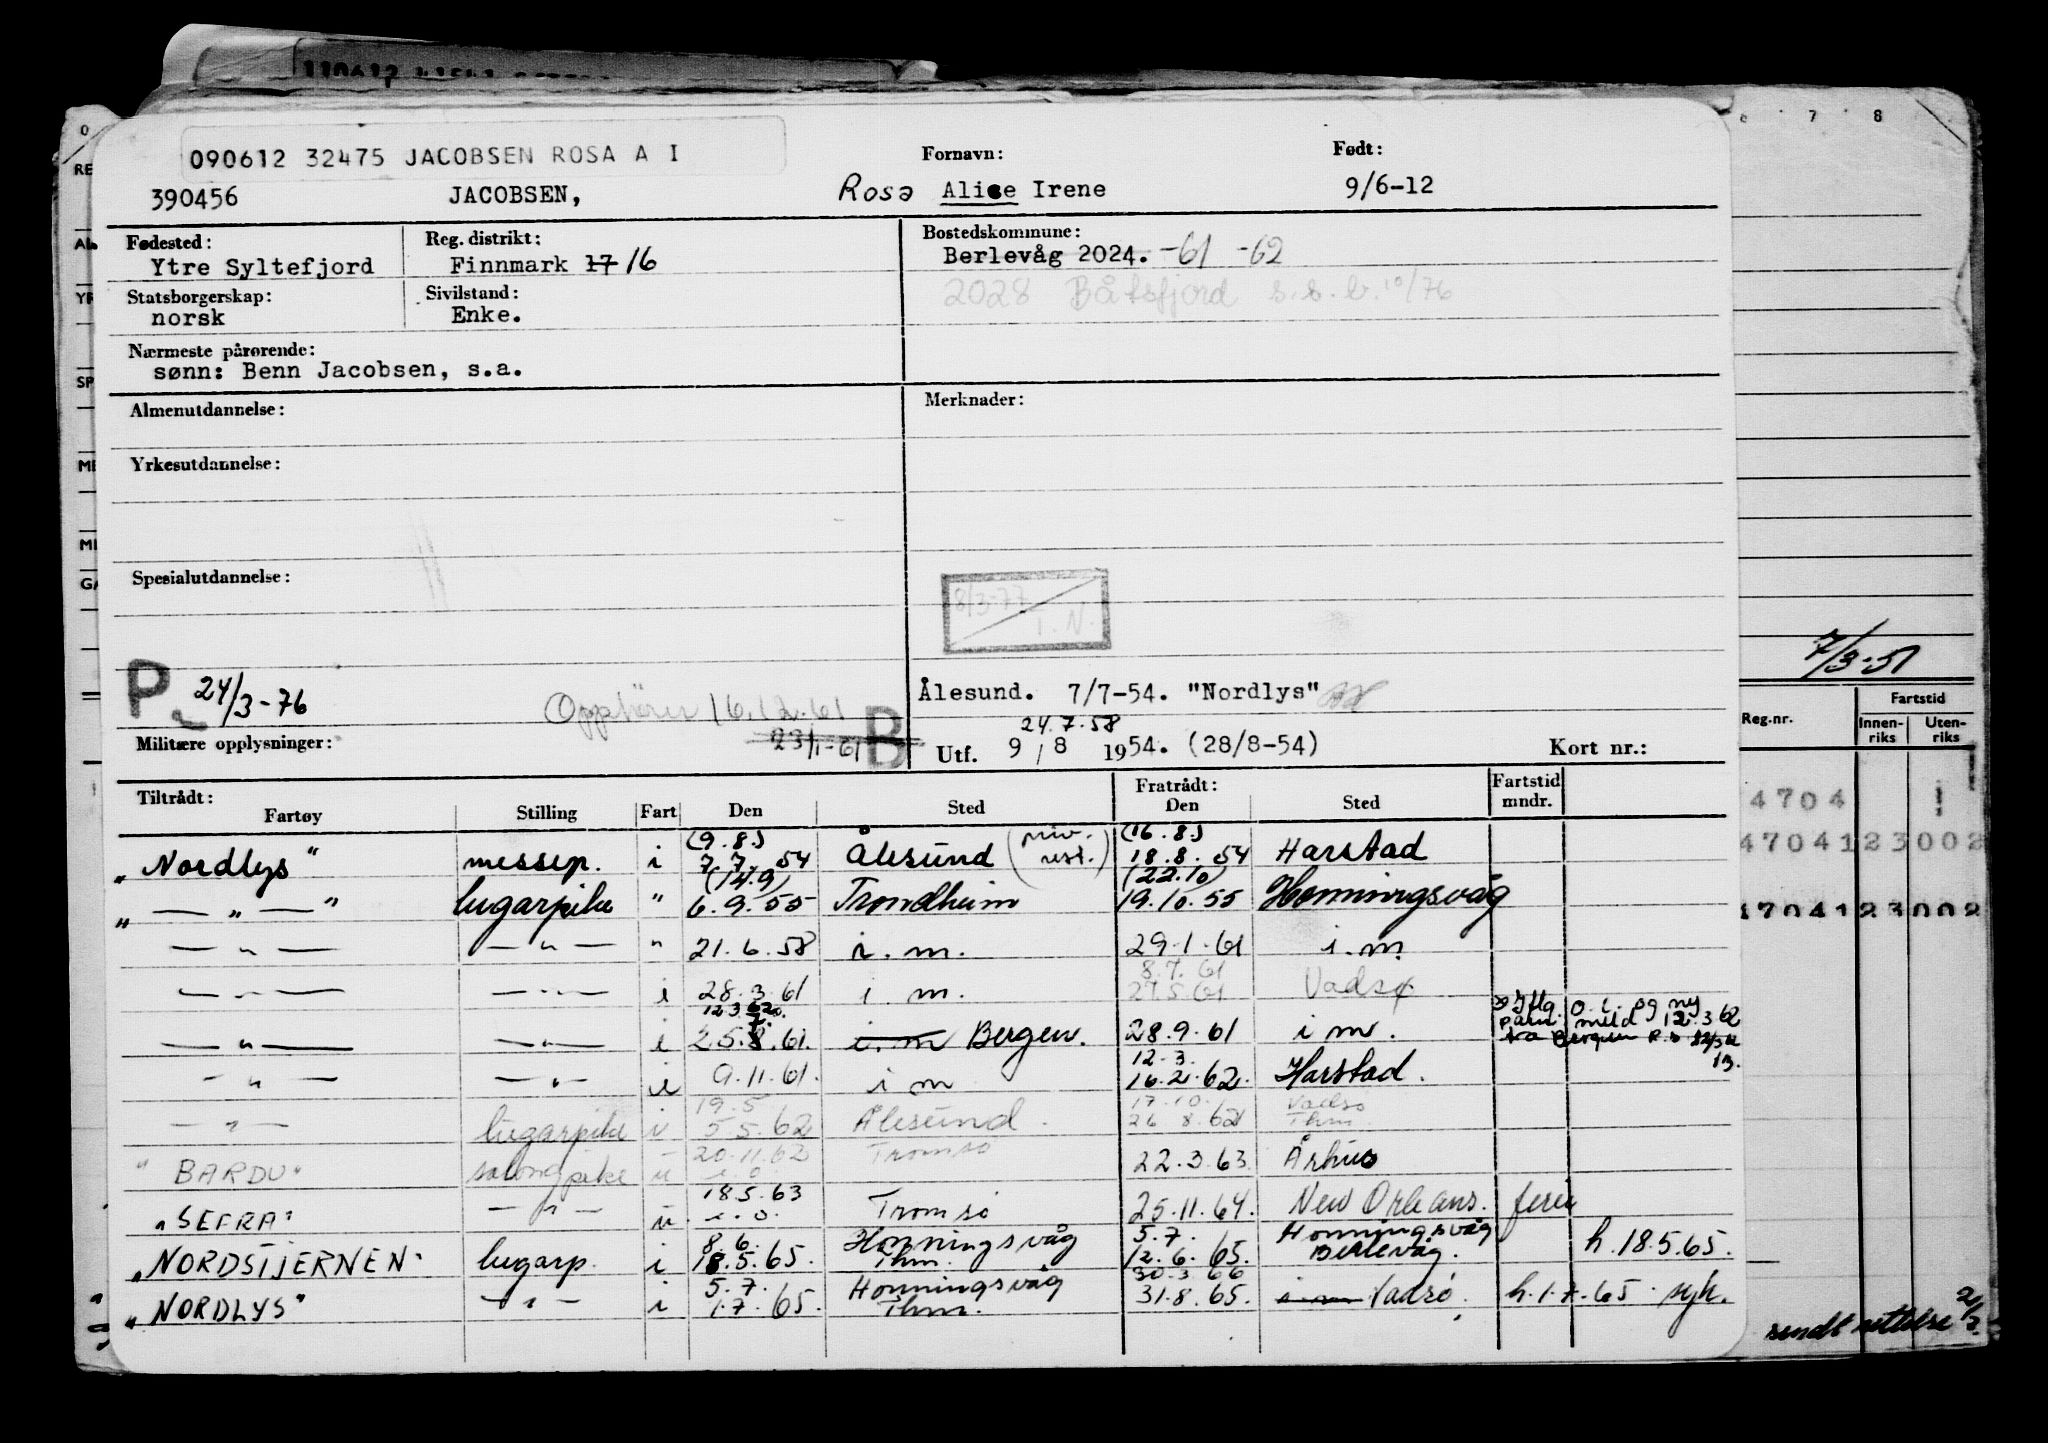 090612 32475 JACOBSEN ROSA A I
390456 JACOBSEN,
Fornavn: Rosa Alice Irene
Født: 9/6-12
Fødested: Ytre Syltefjord
Reg. distrikt: Finnmark 17 16
Bostedskommune: Berlevåg 2024. -61 -62
2028 Båtsfjord s.s.b. 10/76
Statsborgerskap: norsk
Sivilstand: Enke.
Nærmeste pårørende:
sønn: Benn Jacobsen, s.a.
Almenutdannelse:
Merknader:
Yrkesutdannelse:
Spesialutdannelse:
8/3-77
I. N.
7/3-51
P 24/3-76
Opphører 16.12.61
23/1-61 B
Ålesund. 7/7-54. "Nordlys"
24.7.58
Militære opplysninger:
Utf. 9/8 1954. (28/8-54)
Kort nr.:
Reg.nr. Fartstid
Innen-riks Uten-riks
Tiltrådt: Fratrådt:
Fartøy Stilling Fart Den Sted Den Sted Fartstid mndr.
(9.8.) (16.8.)
"Nordlys" messep. i 7.7.54 Ålesund (priv. rest.) 18.8.54 Harstad
(14.9) (22.10)
" — " — " lugarpike " 6.9.55 Trondheim 19.10.55 Honningsvåg
— " — — " — " 21.6.58 i.m. 29.1.61 i.m.
8.7.61
— " — — " — i 28.3.61 i m. 27.5.61 Vadsø
12.3.62
— " — — " — i 25.8.61. i.m Bergen. 28.9.61 i m.
12.3.
— " — — " — i 9.11.61. i m 16.2.62. Harstad.
19.5 17.10. Vadsø
— " — lugarpike i 5.5.62 Ålesund. 26 8.62 Thm.
20.11.62
"BARDU" salongpike u i.o. Tromsø 22.3.63. Århus
18.5.63
"SEFRA" — " — u. i.o. Tromsø 25.11.64. New Orleans. ferie
8.6. Honningsvåg 5.7. Honningsvåg
"NORDSTJERNEN" lugarp. i 18.5.65. Thm. 12.6.65. Berlevåg. h. 18.5.65.
5.7. Honningsvåg 30.3 66
"NORDLYS" — " — i 1.7.65. Thm. 31.8.65. i m Vadsø. h.1.7.65. syk.
sendt rettelse